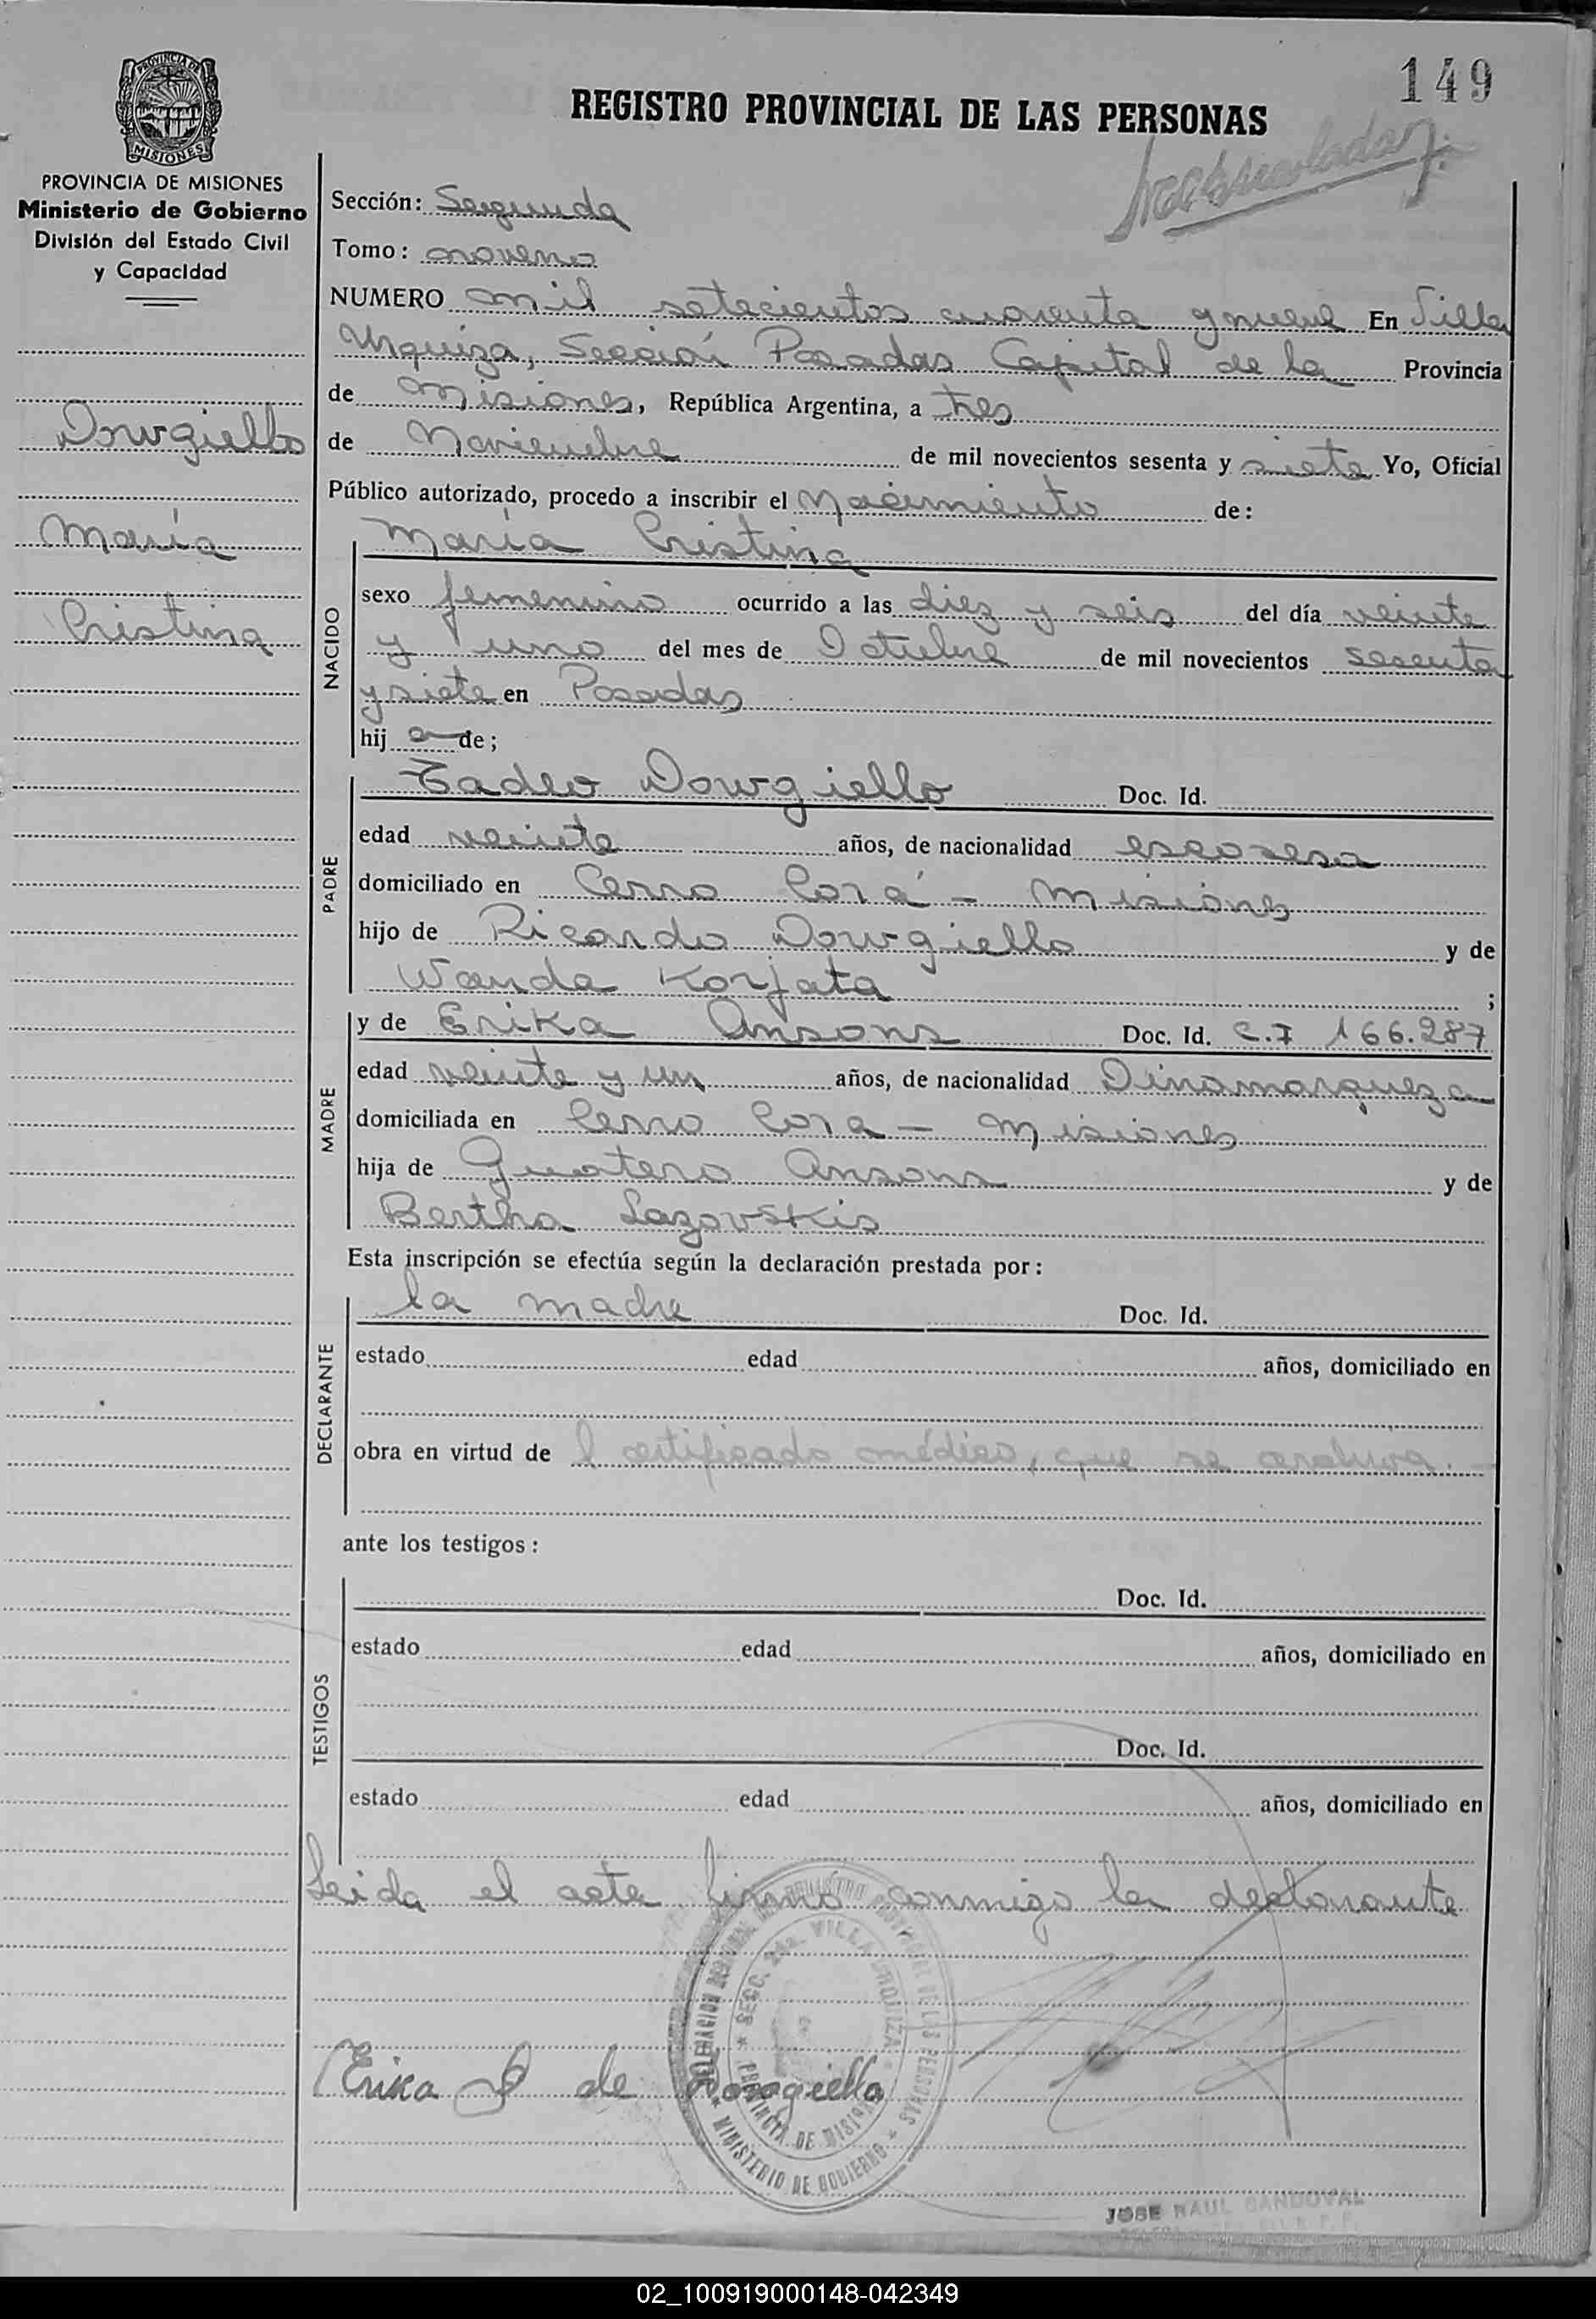 149
REGISTRO PROVINCIAL DE LAS PERSONAS
PROVINCIA DE
MISIONES
PROVINCIA DE MISIONES
Ministerio de Gobierno
División del Estado Civil
y Capacidad
Dowgiello
María
Cristina
Sección: Segunda
Tomo: noveno
NUMERO mil setecientos cuarenta y nueve En Villa
Urquiza, Sección Posadas Capital de la Provincia
de Misiones, República Argentina, a tres
de Noviembre de mil novecientos sesenta y siete Yo, Oficial
Público autorizado, procedo a inscribir el Nacimiento de:
María Cristina
NACIDO
sexo femenino ocurrido a las diez y seis del día veinte
y uno del mes de Octubre de mil novecientos sesenta
y siete en Posadas
hij a de;
PADRE
Tadeo Dowgiello Doc. Id.
edad veinte años, de nacionalidad escosesa
domiciliado en Cerro Corá - Misiones
hijo de Ricardo Dowgiello y de
Wanda Korjata ;
MADRE
y de Erika Ansons Doc. Id. C.I 166.287
edad veinte y un años, de nacionalidad Dinamarqueza
domiciliada en Cerro Cora - Misiones
hija de Ansons y de
Bertha Lazovskis
Esta inscripción se efectúa según la declaración prestada por:
DECLARANTE
la madre Doc. Id.
estado edad años, domiciliado en
obra en virtud de l certificado médico, que se archiva. -
ante los testigos:
TESTIGOS
Doc. Id.
estado edad años, domiciliado en
Doc. Id.
estado edad años, domiciliado en
Leida el acta firmó conmigo la declarante
DELEGACION REGISTRO PROVINCIAL DE LAS PERSONAS
SECC. 2da. VILLA URQUIZA
PROVINCIA DE MISIONES
MINISTERIO DE GOBIERNO
Erika de Dowgiello
JOSE RAUL SANDOVAL
02_100919000148-042349